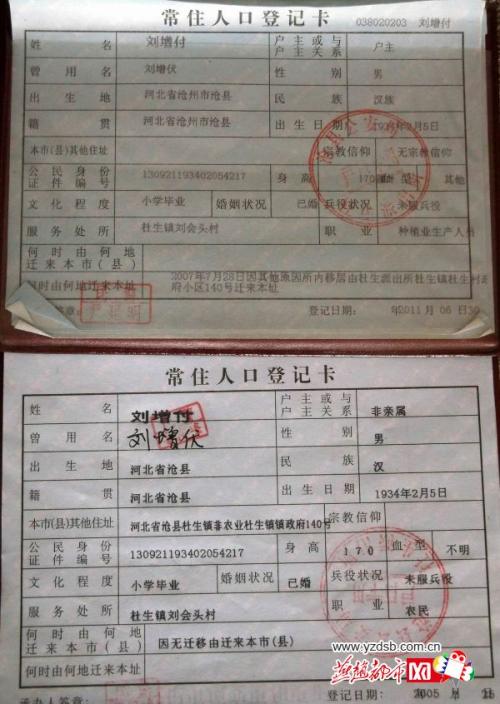 常住人口登记卡
038020203 刘增付
姓名 刘增付 户主或与户主关系 户主
曾用名 刘增伏 性别 男
出生地 河北省沧州市沧县 民族 汉族
籍贯 河北省沧州市沧县 出生日期 1934年2月5日
本市(县)其他住址 宗教信仰 无宗教信仰
公民身份证件编号 130921193402054217 身高 170 血型 其他
文化程度 小学毕业 婚姻状况 已婚 兵役状况 未服兵役
服务处所 杜生镇刘会头村 职业 种植业生产人员
何时由何地迁来本市(县)
何时由何地迁来本址 2007年7月28日因其他原因所内移居由杜生派出所杜生镇杜生村政府小区140号迁来本址
登记日期: 2011年06月30
常住人口登记卡
姓名 刘增付 户主或与户主关系 非亲属
曾用名 刘增伏 性别 男
出生地 河北省沧县 民族 汉
籍贯 河北省沧县 出生日期 1934年2月5日
本市(县)其他住址 河北省沧县杜生镇非农业杜生镇镇政府140号 宗教信仰
公民身份证件编号 130921193402054217 身高 170 血型 不明
文化程度 小学毕业 婚姻状况 已婚 兵役状况 未服兵役
服务处所 杜生镇刘会头村 职业 农民
何时由何地迁来本市(县) 因无迁移由迁来本市(县)
何时由何地迁来本址
承办人签章: 登记日期: 2005年 月 日
www.yzdsb.com.cn
燕赵都市网